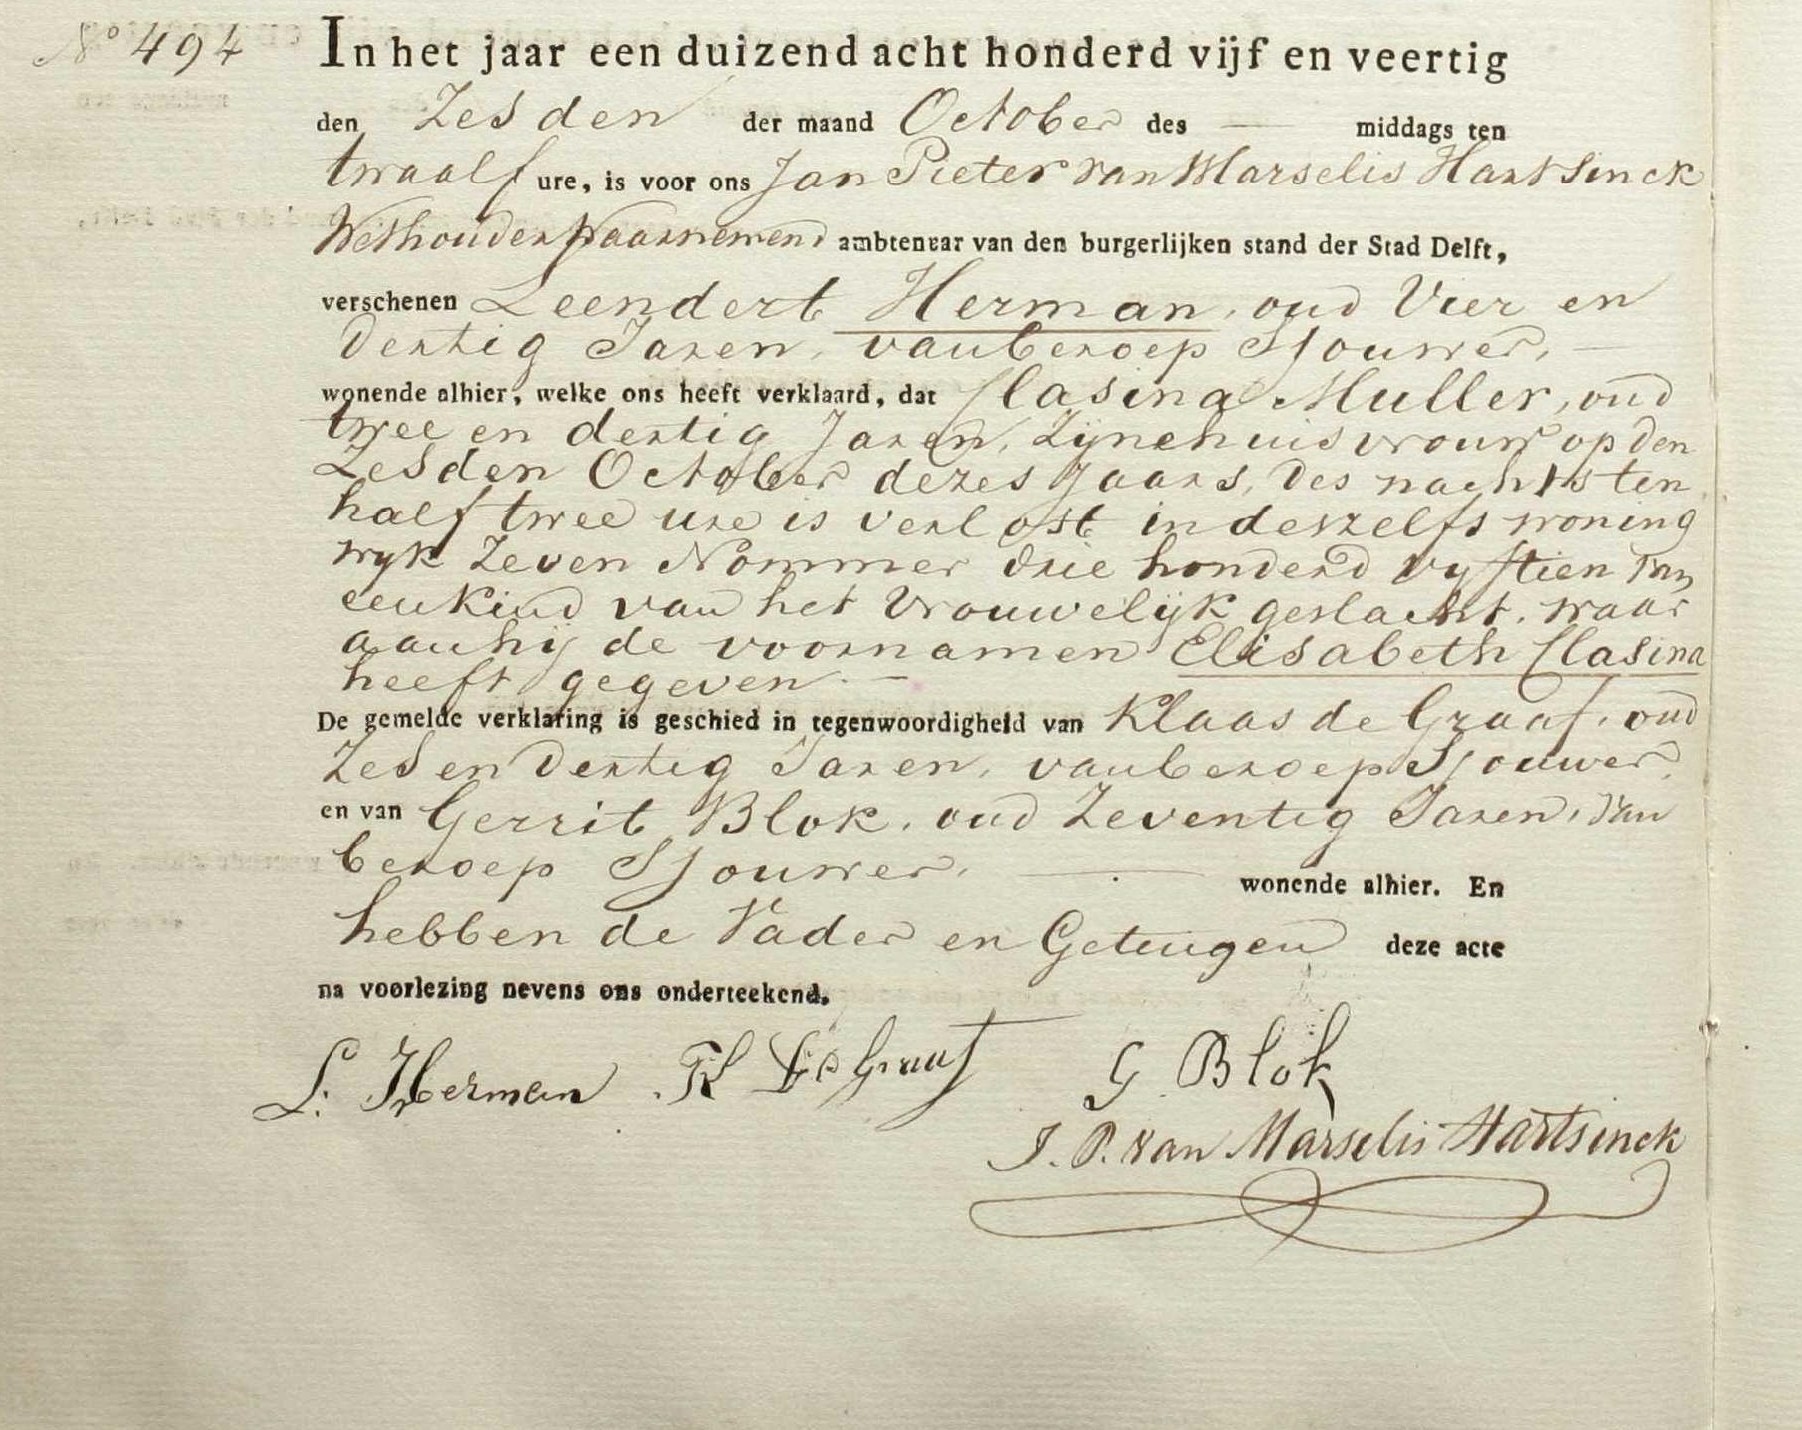 No 494
In het jaar een duizend acht honderd vijf en veertig
den Zesden der maand October des — middags ten
twaalf ure, is voor ons Jan Pieter van Marselis Hartsinck
Wethouder Waarnemend ambtenaar van den burgerlijken stand der Stad Delft,
verschenen Leendert Herman, oud Vier en
Dertig Jaren, van beroep Sjouwer, —
wonende alhier, welke ons heeft verklaard, dat Clasina Muller, oud
twee en dertig Jaren, Zijne huisvrouw op den
Zesden October dezes Jaars, des nachts ten
half twee ure is verlost in deszelfs woning
wyk Zeven Nommer drie honderd vyftien van
een kind van het Vrouwelijk geslacht, waar
aan hij de voornamen Elisabeth Clasina
heeft gegeven. —
De gemelde verklaring is geschied in tegenwoordigheid van Klaas de Graaf, oud
Zes en Dertig Jaren, van beroep Sjouwer,
en van Gerrit Blok, oud Zeventig Jaren, van
beroep Sjouwer. — wonende alhier. En
hebben de Vader en Getuigen deze acte
na voorlezing nevens ons onderteekend.
L: Herman K De Graaf G Blok
J. P. van Marselis Hartsinck